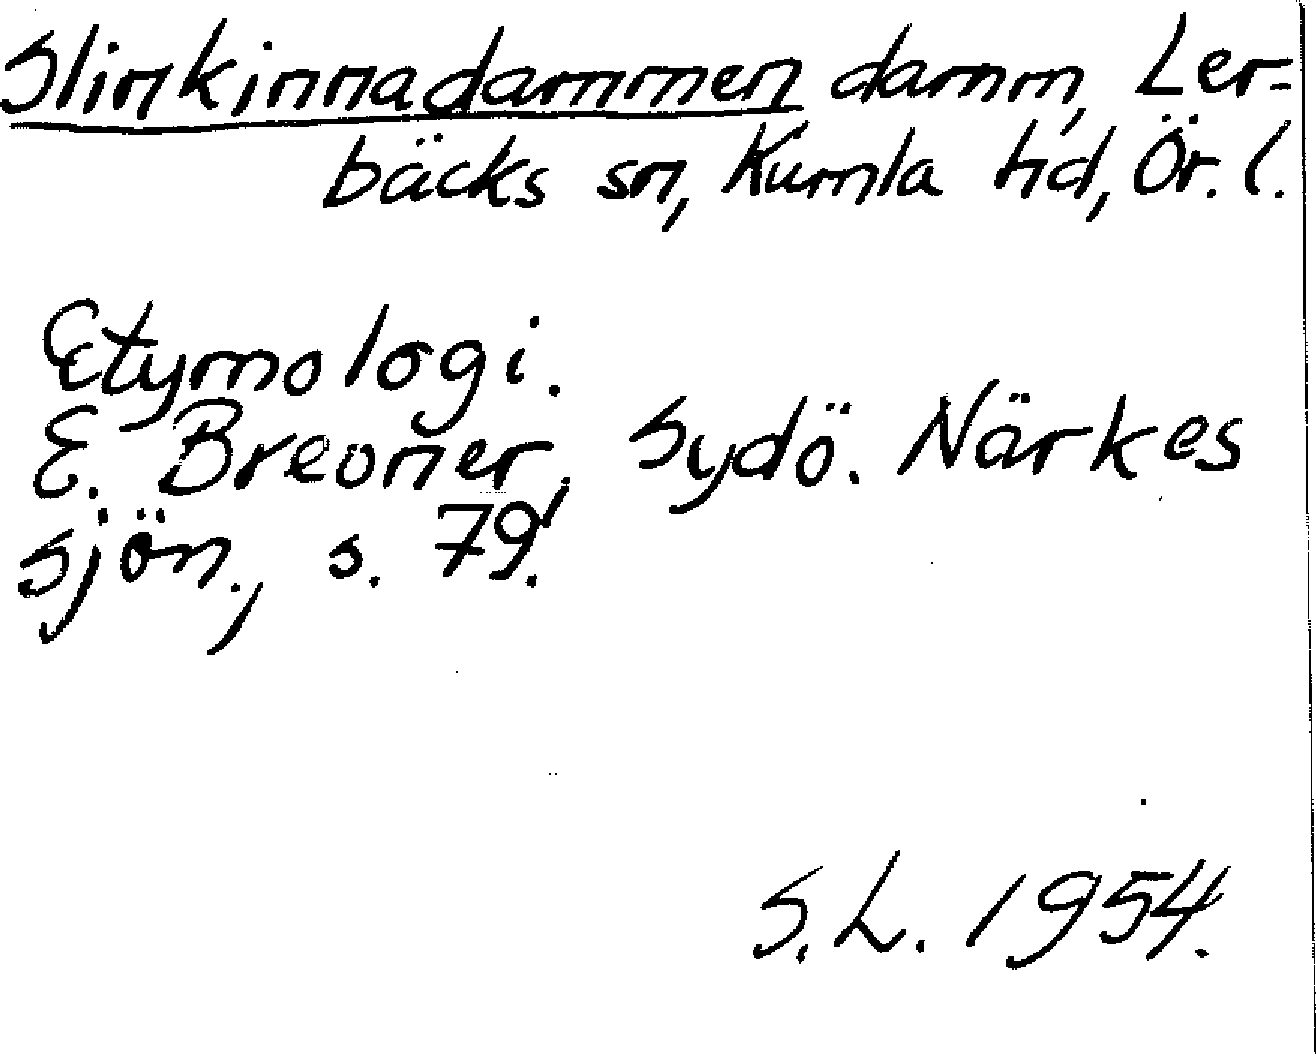 Slinkinnadammen damm, Ler-
bäcks sn, Kumla hd, Ör. l.
Etymologi.
E. Brevner, Sydö. Närkes
sjön., s. 79.
S.L. 1954.